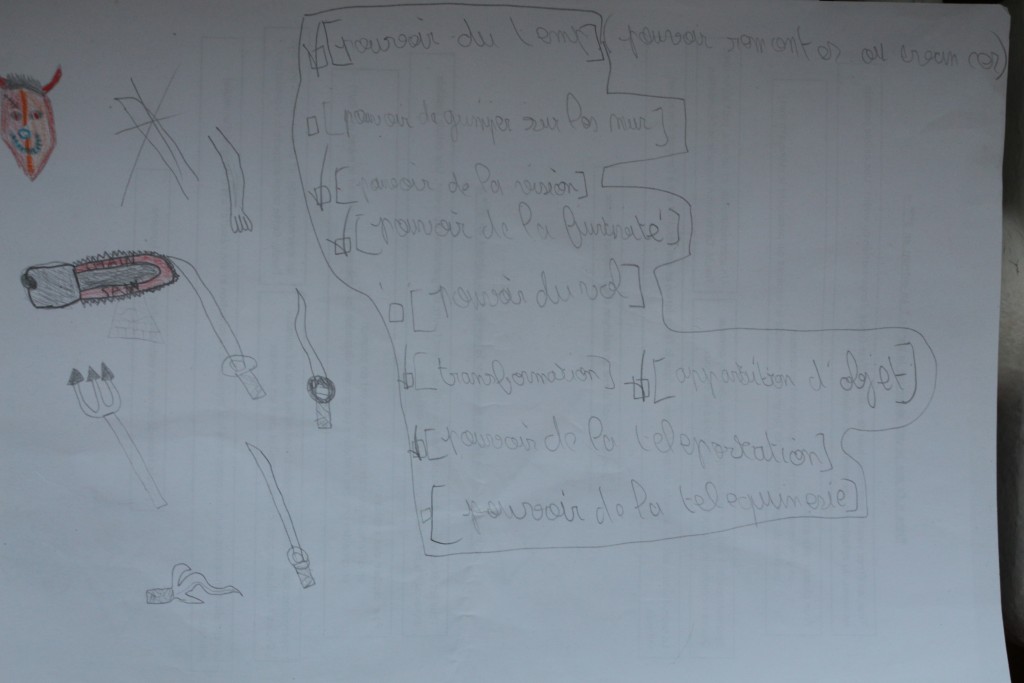 [pouvoir du temps] (pouvoir remonter ou
[pouvoir de grimper sur les mur]
[pouvoir de la vision]
[pouvoir de la
[pouvoir du vol]
[tranformation] [apparition d'objet]
[pouvoir de la teleportation]
[pouvoir de la telequinesie]
CHAIN
SAW